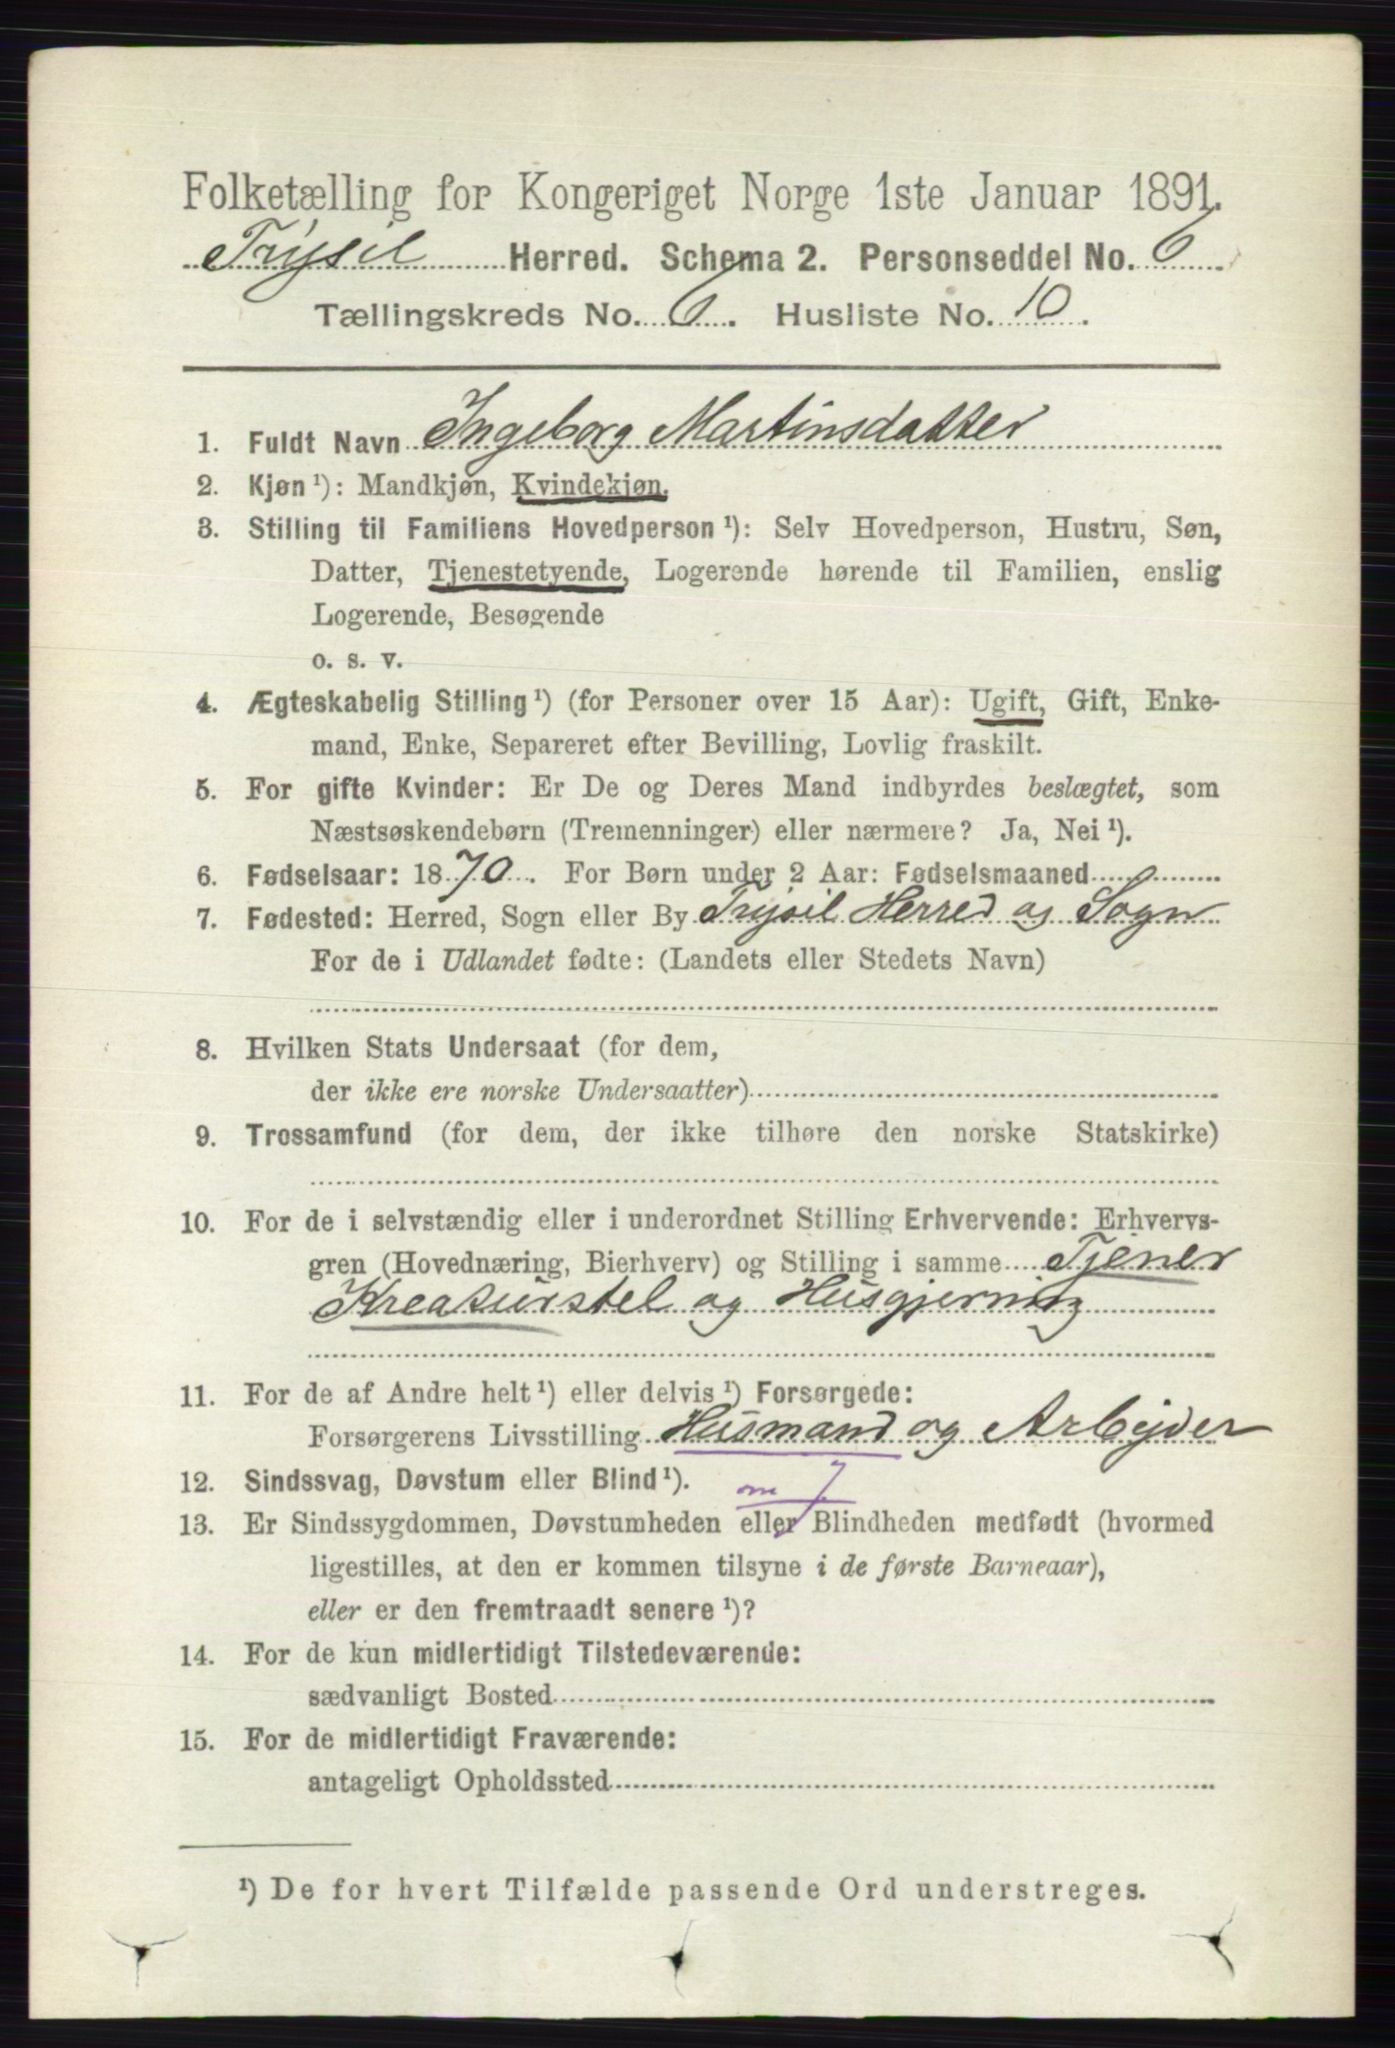 Folketælling for Kongeriget Norge 1ste Januar 1891.
Trysil Herred. Schema 2. Personseddel No. 6
Tællingskreds No. 6. Husliste No. 10.
1. Fuldt Navn Ingeborg Martinsdatter
2. Kjøn ¹): Mandkjøn, Kvindekjøn.
3. Stilling til Familiens Hovedperson ¹): Selv Hovedperson, Hustru, Søn,
Datter, Tjenestetyende, Logerende hørende til Familien, enslig
Logerende, Besøgende
o. s. v.
4. Ægteskabelig Stilling ¹) (for Personer over 15 Aar): Ugift, Gift, Enke-
mand, Enke, Separeret efter Bevilling, Lovlig fraskilt.
5. For gifte Kvinder: Er De og Deres Mand indbyrdes beslægtet, som
Næstsøskendebørn (Tremenninger) eller nærmere? Ja, Nei ¹).
6. Fødselsaar: 1870. For Børn under 2 Aar: Fødselsmaaned
7. Fødested: Herred, Sogn eller By Trysil Herred og Sogn
For de i Udlandet fødte: (Landets eller Stedets Navn)
8. Hvilken Stats Undersaat (for dem,
der ikke ere norske Undersaatter)
9. Trossamfund (for dem, der ikke tilhøre den norske Statskirke)
10. For de i selvstændig eller i underordnet Stilling Erhvervende: Erhvervs-
gren (Hovednæring, Bierhverv) og Stilling i samme Tjener
Kreaturstel og Husgjerning
11. For de af Andre helt ¹) eller delvis ¹) Forsørgede:
Forsørgerens Livsstilling Husmand og Arbejder
12. Sindssvag, Døvstum eller Blind ¹).
13. Er Sindssygdommen, Døvstumheden eller Blindheden medfødt (hvormed
ligestilles, at den er kommen tilsyne i de første Barneaar),
eller er den fremtraadt senere ¹)?
14. For de kun midlertidigt Tilstedeværende:
sædvanligt Bosted
15. For de midlertidigt Fraværende:
antageligt Opholdssted
¹) De for hvert Tilfælde passende Ord understreges.